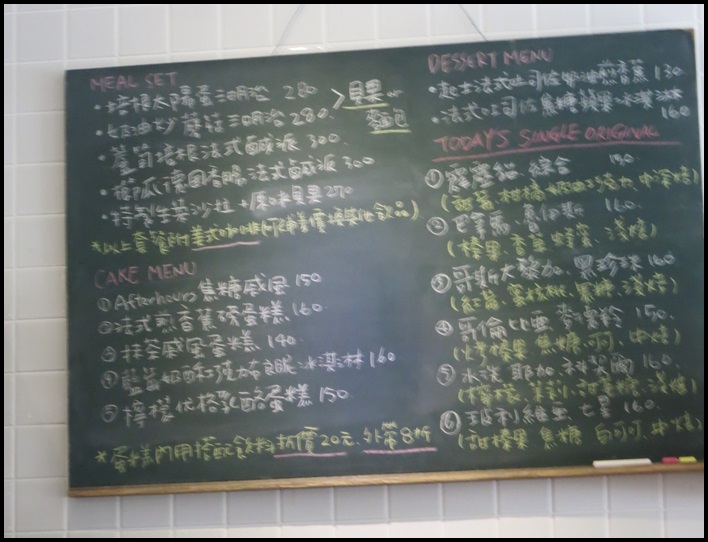 MEAL SET
•培根太陽蛋三明治 280 >貝果or麵包
•奶油炒蘑菇三明治 280
•蘆筍培根法式鹹派 300
•德國香腸法式鹹派 300
•特製生菜沙拉+原味貝果 270
*以上套餐附美式咖啡(可補差價換其他飲品)
CAKE MENU
①Afterhours焦糖戚風 150
②法式煎香蕉磅蛋糕 160
③抹茶戚風蛋糕 140
④藍莓奶酥巧克力布朗尼冰淇淋 160
⑤檸檬優格乳酪蛋糕 150
*蛋糕內用搭配飲料折價20元、外帶8折
DESSERT MENU
•起士法式吐司佐奶油煎香蕉 130
•法式吐司佐焦糖蘋果冰淇淋 160
TODAY'S SINGLE ORIGINAL
① 綜合 150
中深焙)
②巴拿馬 160
(榛果、香草、蜂蜜、淺焙)
③哥斯大黎加、黑珍珠 160
(紅莓、黑糖、淺焙)
④哥倫比亞 150
(烤榛果 焦糖 中焙)
⑤水洗 耶加 160
(檸檬、茉莉、淺焙)
⑥玻利維亞 160
(甜榛果 焦糖 白可可、中焙)